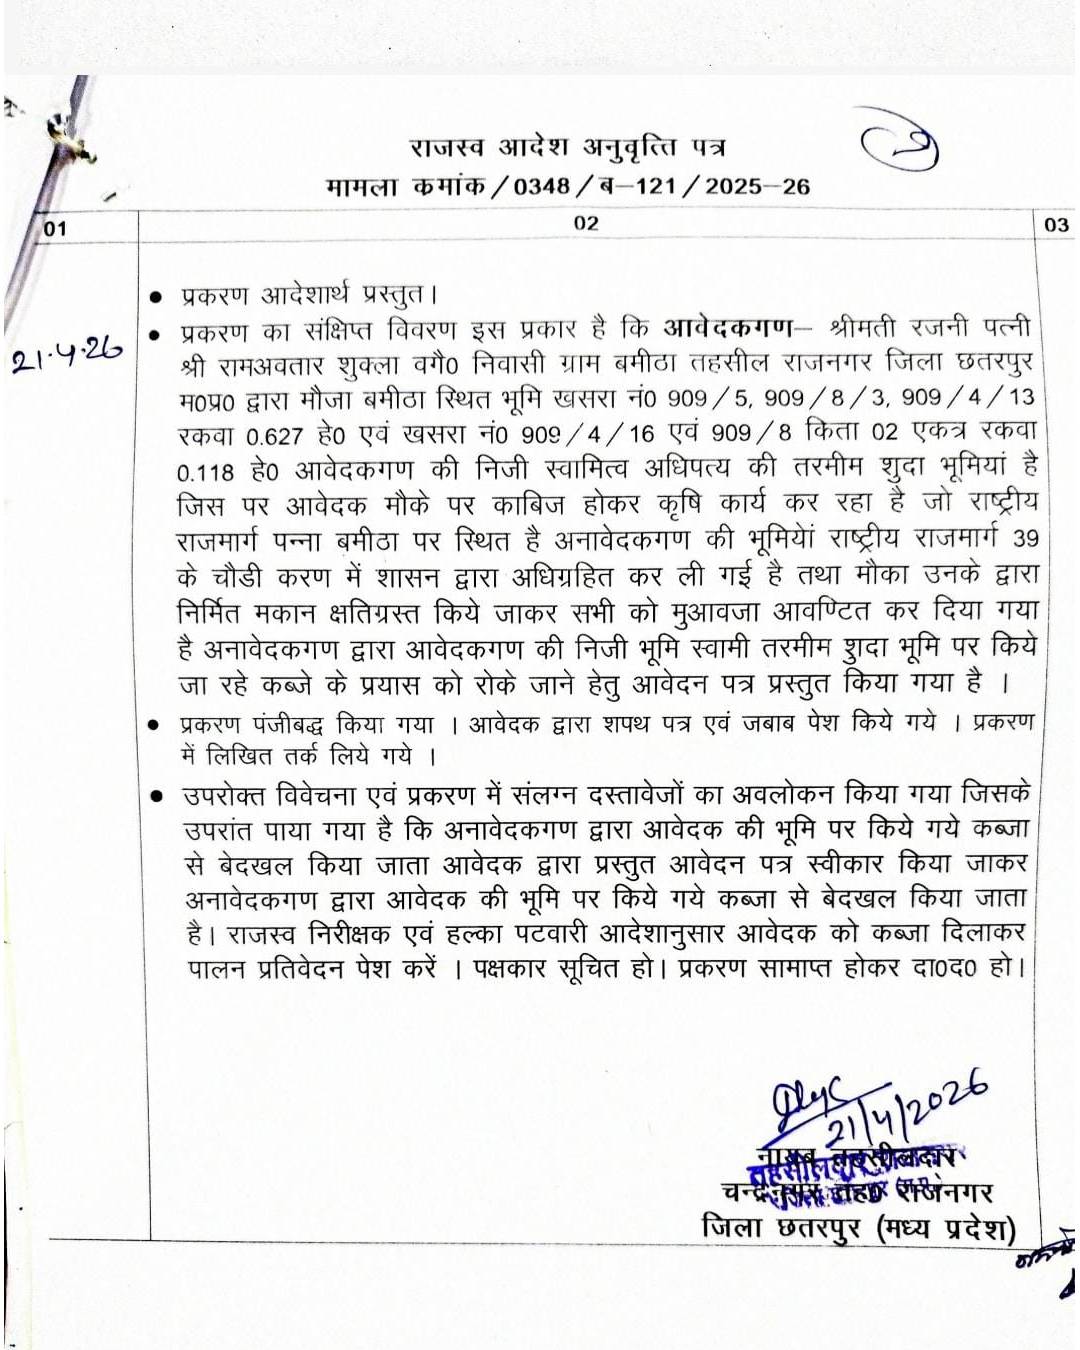 राजस्व आदेश अनुवृत्ति पत्र
मामला कमांक/0348/ब–121/2025–26
01 02 03
21.4.26
• प्रकरण आदेशार्थ प्रस्तुत।
• प्रकरण का संक्षिप्त विवरण इस प्रकार है कि आवेदकगण– श्रीमती रजनी पत्नी
श्री रामअवतार शुक्ला वगै0 निवासी ग्राम बमीठा तहसील राजनगर जिला छतरपुर
म0प्र0 द्वारा मौजा बमीठा स्थित भूमि खसरा नं0 909/5, 909/8/3, 909/4/13
रकवा 0.627 हे0 एवं खसरा नं0 909/4/16 एवं 909/8 किता 02 एकत्र रकवा
0.118 हे0 आवेदकगण की निजी स्वामित्व अधिपत्य की तरमीम शुदा भूमियां है
जिस पर आवेदक मौके पर काबिज होकर कृषि कार्य कर रहा है जो राष्ट्रीय
राजमार्ग पन्ना बमीठा पर स्थित है अनावेदकगण की भूमियेां राष्ट्रीय राजमार्ग 39
के चौडी करण में शासन द्वारा अधिग्रहित कर ली गई है तथा मौका उनके द्वारा
निर्मित मकान क्षतिग्रस्त किये जाकर सभी को मुआवजा आवण्टित कर दिया गया
है अनावेदकगण द्वारा आवेदकगण की निजी भूमि स्वामी तरमीम शुदा भूमि पर किये
जा रहे कब्जे के प्रयास को रोके जाने हेतु आवेदन पत्र प्रस्तुत किया गया है ।
• प्रकरण पंजीबद्ध किया गया । आवेदक द्वारा शपथ पत्र एवं जबाब पेश किये गये । प्रकरण
में लिखित तर्क लिये गये ।
• उपरोक्त विवेचना एवं प्रकरण में संलग्न दस्तावेजों का अवलोकन किया गया जिसके
उपरांत पाया गया है कि अनावेदकगण द्वारा आवेदक की भूमि पर किये गये कब्जा
से बेदखल किया जाता आवेदक द्वारा प्रस्तुत आवेदन पत्र स्वीकार किया जाकर
अनावेदकगण द्वारा आवेदक की भूमि पर किये गये कब्जा से बेदखल किया जाता
है। राजस्व निरीक्षक एवं हल्का पटवारी आदेशानुसार आवेदक को कब्जा दिलाकर
पालन प्रतिवेदन पेश करें । पक्षकार सूचित हो। प्रकरण सामाप्त होकर दा0द0 हो।
21/4/2026
नायब तहसीलदार
चन्द्रनगर तह0 राजनगर
जिला छतरपुर (मध्य प्रदेश)